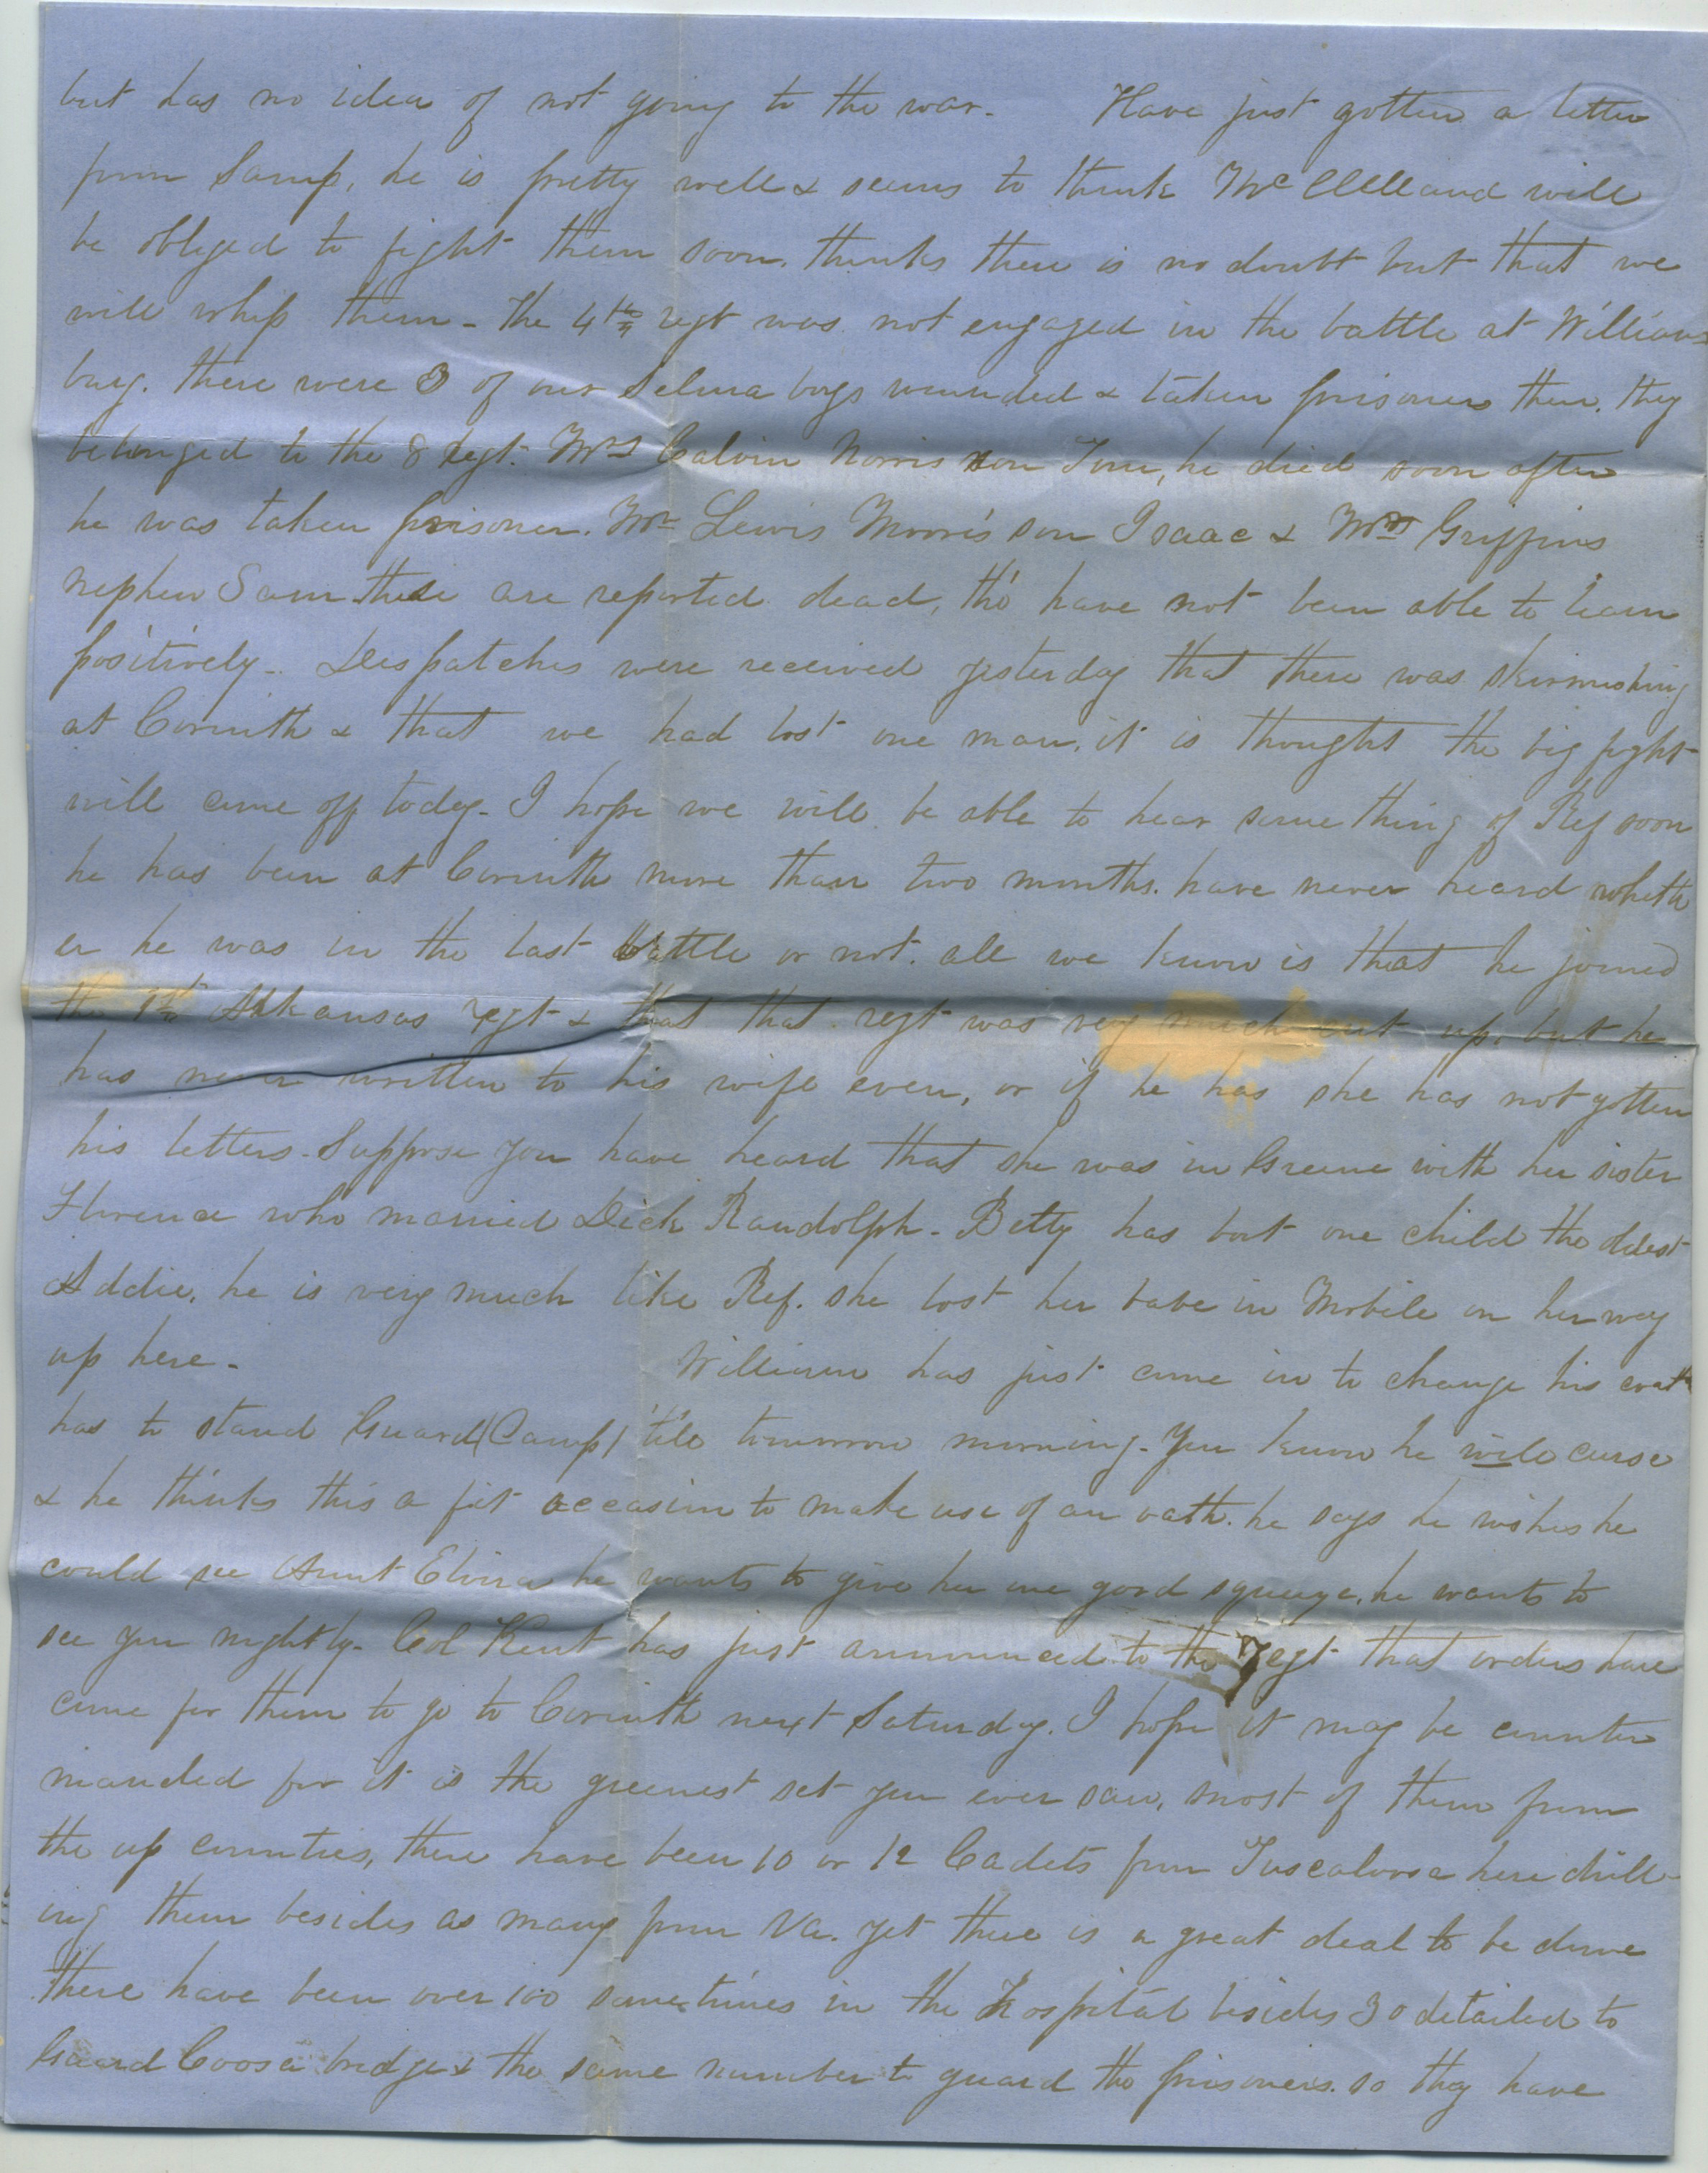 but has no idea of not going to the war. Have just gotten a letter
from Samp, he is pretty well & seems to think McClelland will
be obliged to fight them soon. thinks there is no doubt but that we
will whip them - The 4th regt was not engaged in the battle at Williams
burg. there were 3 of our Selma boys wounded & taken prisoners there. they
belonged to the 8 regt. Mrs Calvin Norris son Tom, he died soon after
he was taken prisoner. Mr Lewis Morris son Isaac & Mrs Griffins
nephew Sam these are reported dead, tho' have not been able to learn
positively - Despatches were received yesterday that there was skirmishing
at Corinth & that we had lost one man. it is thought the big fight
will come off today - I hope we will be able to hear something of Ref soon
he has been at Corinth more than two months. have never heard wheth
er he was in the last battle or not. all we know is that he joined
the 1st Arkansas regt & that that regt was very much cut up. but he
has never written to his wife even, or if he has she has not gotten
his letters - Suppose you have heard that she was in Greene with her sister
Florence who married Dick Randolph - Betty has but one child the oldest
Addie. he is very much like Ref. she lost her babe in Mobile on her way
up here - William has just come in to change his coat
has to stand Guard (Camp) 'till tomorrow morning - You know he will curse
& he thinks this a fit occasion to make use of an oath. he says he wishes he
could see Aunt Elvira he wants to give her one good squeeze, he wants to
see you mightily - Col Kent has just announced to the regt that orders have
come for them to go to Corinth next Saturday. I hope it may be counter
manded for it is the greenest set you ever saw, most of them from
the up counties, there have been 10 or 12 Cadets from Tuscaloosa here drill-
ing them besides as many from Va. yet there is a great deal to be done
There have been over 100 sometimes in the hospital besides 30 detailed to
Guard Coosa bridge & the same number to guard the prisoners. so they have